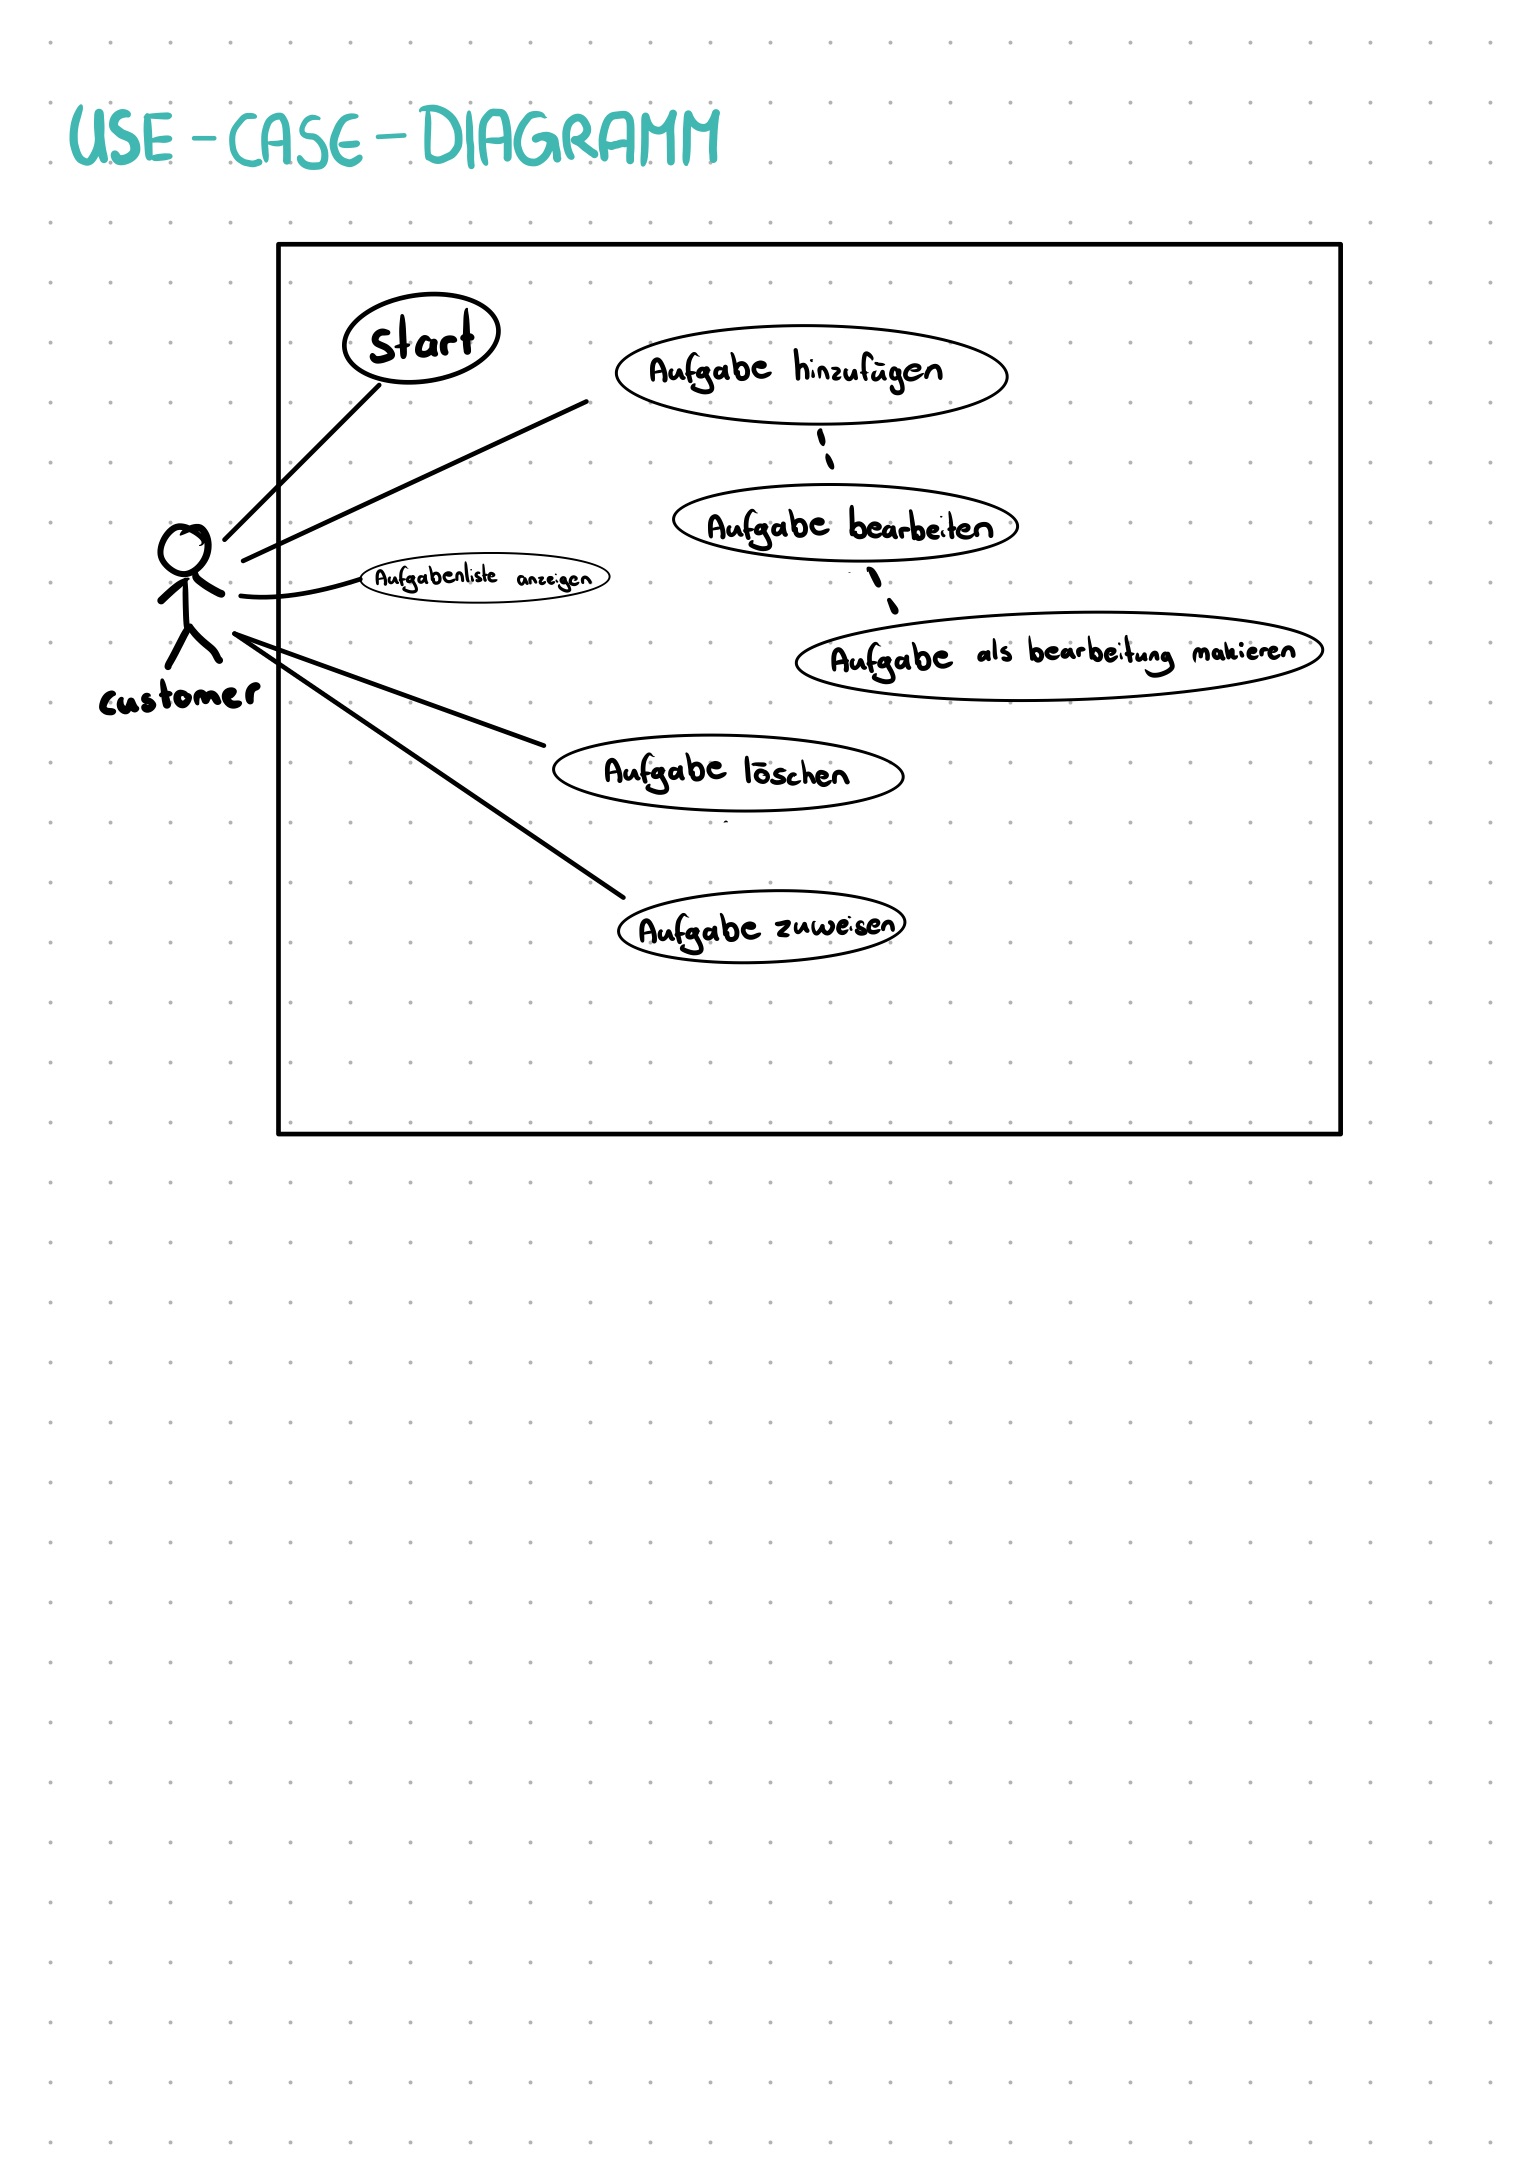 USE-CASE-DIAGRAMM
start
Aufgabe hinzufügen
Aufgabe bearbeiten
Aufgabenliste anzeigen
Aufgabe als bearbeitung makieren
customer
Aufgabe löschen
Aufgabe zuweisen